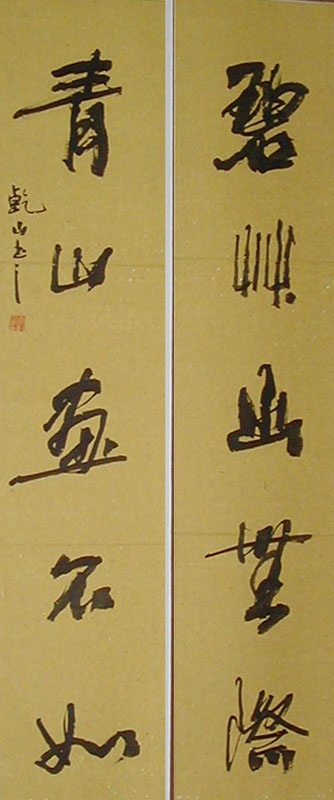 碧艸幽無際
青山畫不如
乾山書